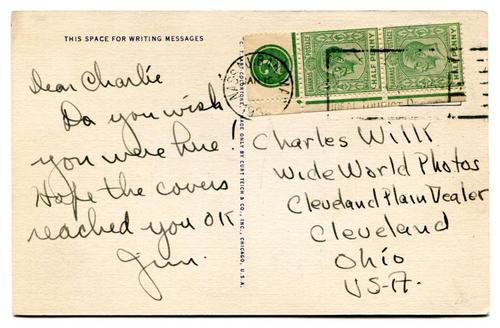 THIS SPACE FOR WRITING MESSAGES
Dear Charlie
Do you wish
you were here!
Hope the covers
reached you OK
Jim.
MADE ONLY BY CURT TEICH & CO., INC., CHICAGO, U.S.A.
NASSAU
HALF PENNY
HALF PENNY
Charles Willk
Wide World Photos
Cleveland Plain Dealer
Cleveland
Ohio
US-A.